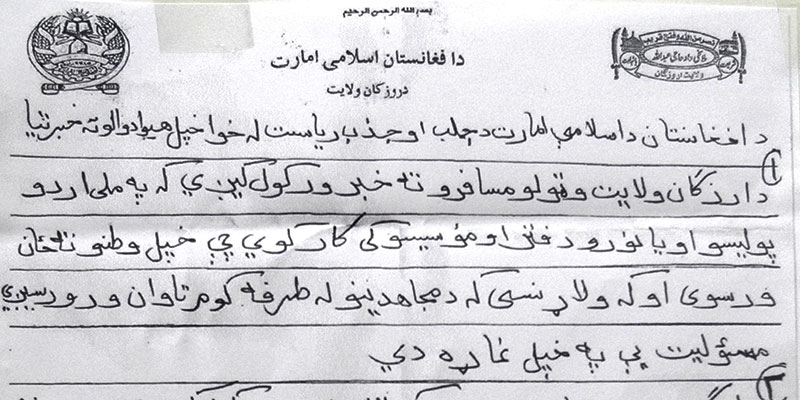 بسم الله الرحمن الرحیم
دافغانستان اسلامی امارت
دروزگان ولایت
نصر من الله و فتح قریب
ولایت اروزگان
دافغانستان داسلامي امارت دجلب اوجذب ریاست له خوا خپل هیوادوالو ته خبرتیا
۱
دارزګان ولایت وټولو مسافرو ته خبر ورکول کیږي که په ملی اردو
پولیسو او یا نورو دفترو اومؤسیسو کی کار کوي چې خپل وطنو ته ځان
ورسوی اوکه ولاړ نسی که دمجاهدینو له طرفه کوم تاوان ورو رسیږي
مسؤلیت یې په خپل غاړه دي
۲